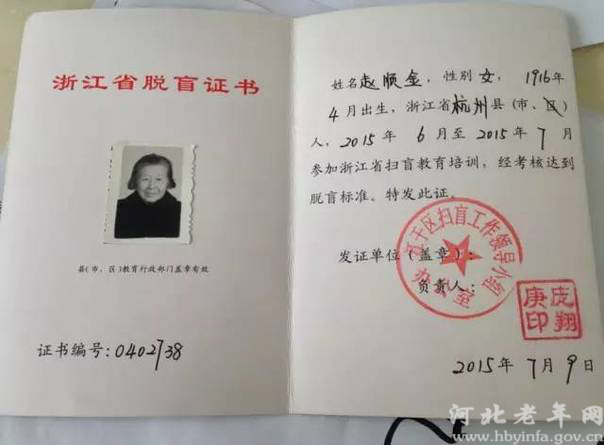 浙江省脱盲证书
县(市、区)教育行政部门盖章有效
证书编号：0402738
姓名赵顺金，性别女，1916年
4月出生，浙江省杭州县(市、区)
人，2015年6月至2015年7月
参加浙江省扫盲教育培训，经考核达到
脱盲标准。特发此证。
发证单位(盖章)：
负责人：
江干区扫盲工作领导小组
办公室
庞翔
庚印
2015年7月9日
河北老年网
www.hbyinfa.gov.cn